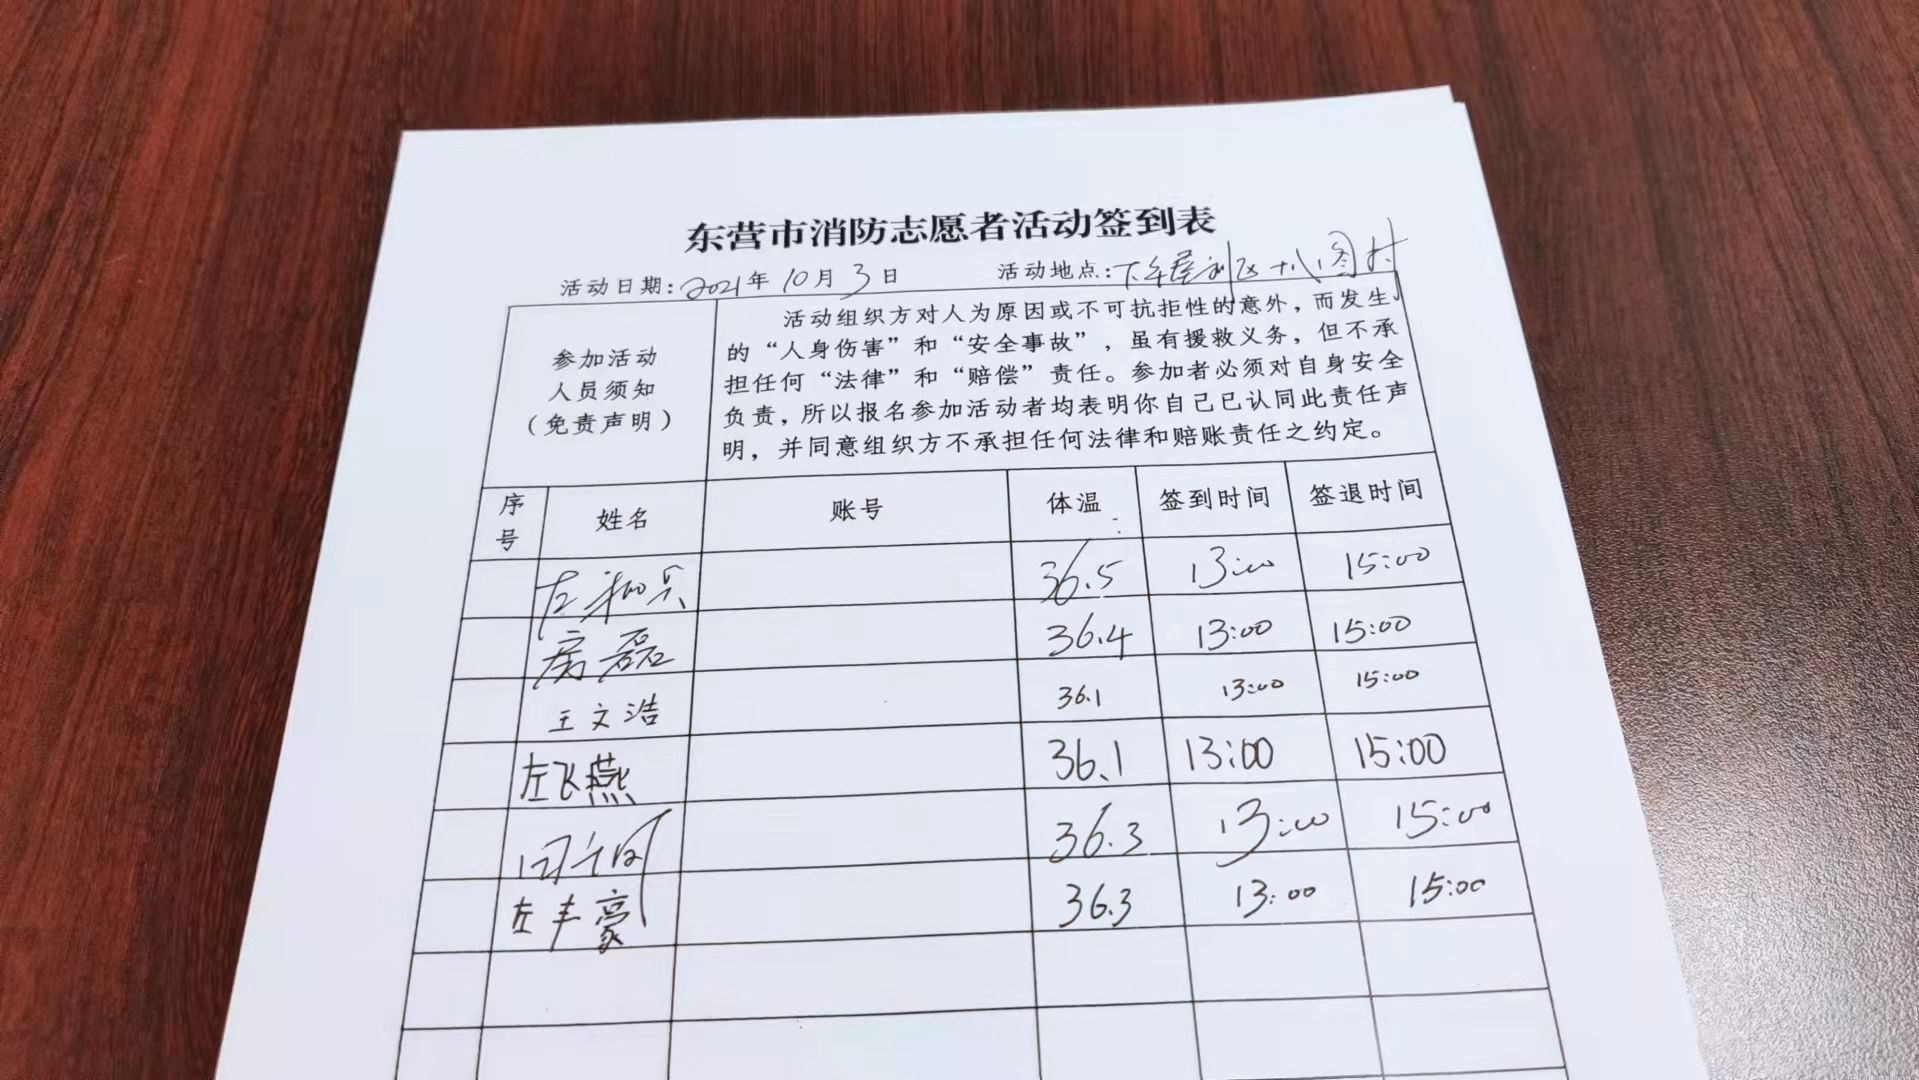 东营市消防志愿者活动签到表
活动日期:2021年10月3日 活动地点:
参加活动
人员须知
(免责声明)
活动组织方对人为原因或不可抗拒性的意外,而发生
的“人身伤害”和“安全事故”,虽有援救义务,但不承
担任何“法律”和“赔偿”责任。参加者必须对自身安全
负责,所以报名参加活动者均表明你自己已认同此责任声
明,并同意组织方不承担任何法律和赔账责任之约定。
序号 姓名 账号 体温 签到时间 签退时间
左 36.5 13:00 15:00
房磊 36.4 13:00 15:00
王文浩 36.1 13:00 15:00
左飞燕 36.1 13:00 15:00
36.3 13:00 15:00
左丰豪 36.3 13:00 15:00